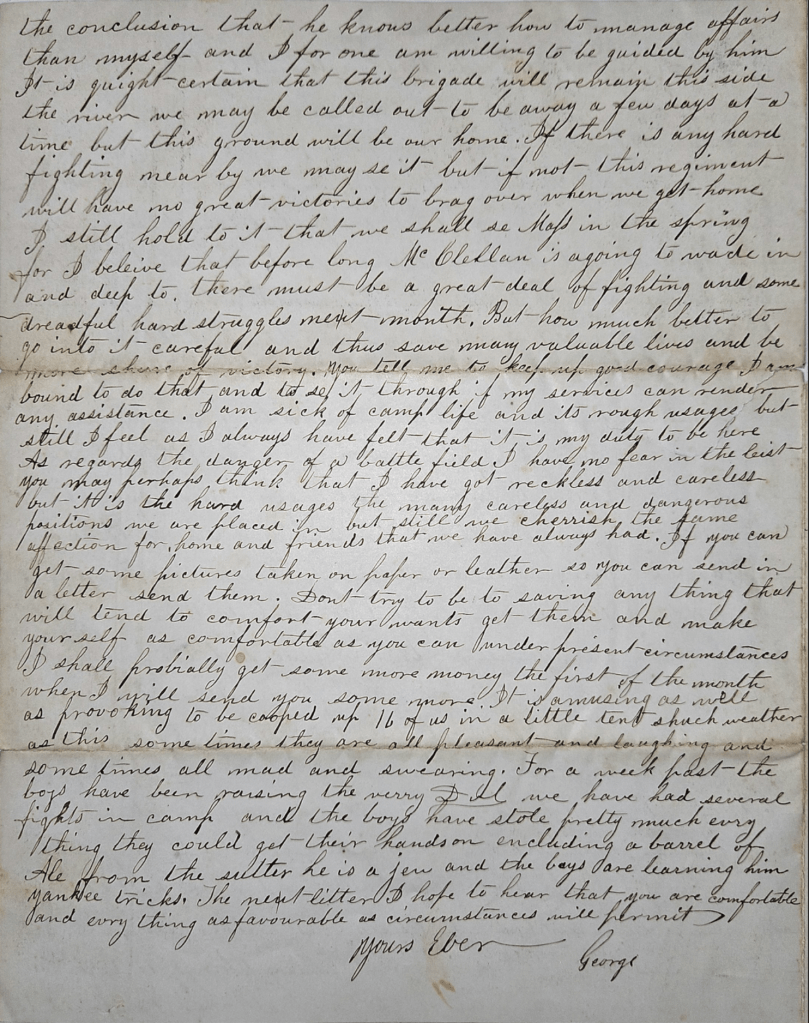 the conclusion that he knows better how to manage affairs
than myself and I for one am willing to be guided by him
It is quight certain that this brigade will remain this side
the river we may be called out to be away a few days at a
time but this ground will be our home. If there is any hard
fighting near by we may se it but if not this regiment
will have no great victories to brag over when we get home
I still hold to it that we shall se Mass in the spring
for I beleive that before long Mc Clellan is agoing to wade in
and deep to. there must be a great deal of fighting and some
dreadful hard struggles next month. But how much better to
go into it careful and thus save many valuable lives and be
more shure of victory. You tell me to keep up good courage I am
bound to do that and to se it through if my services can render
any assistance. I am sick of camp life and its rough usages but
still I feel as I always have felt that it is my duty to be here
As regards the danger of a battle field I have no fear in the leist
you may perhaps think that I have got reckless and careless
but it is the hard usages the many careless and dangerous
positions we are placed in but still we cherrish the same
affection for home and friends that we have always had. If you can
get some pictures taken on paper or leather so you can send in
a letter send them. Dont try to be to saving any thing that
will tend to comfort your wants get them and make
your self as comfortable as you can under present circumstances
I shall probially get some more money the first of the month
when I will send you some more. It is amusing as well
as provoking to be cooped up 16 of us in a little tent shuch weather
as this some times they are all pleasant and laughing and
some times all mad and swearing. For a week past the
boys have been raising the verry D we have had several
fights in camp and the boys have stole pretty much evry
thing they could get their hands on encluding a barrel of
Ale from the sutter he is a jew and the boys are learning him
yankee tricks. The next litter I hope to hear that you are comfortable
and evry thing as favourable as circumstances will permit
Yours Ever
George